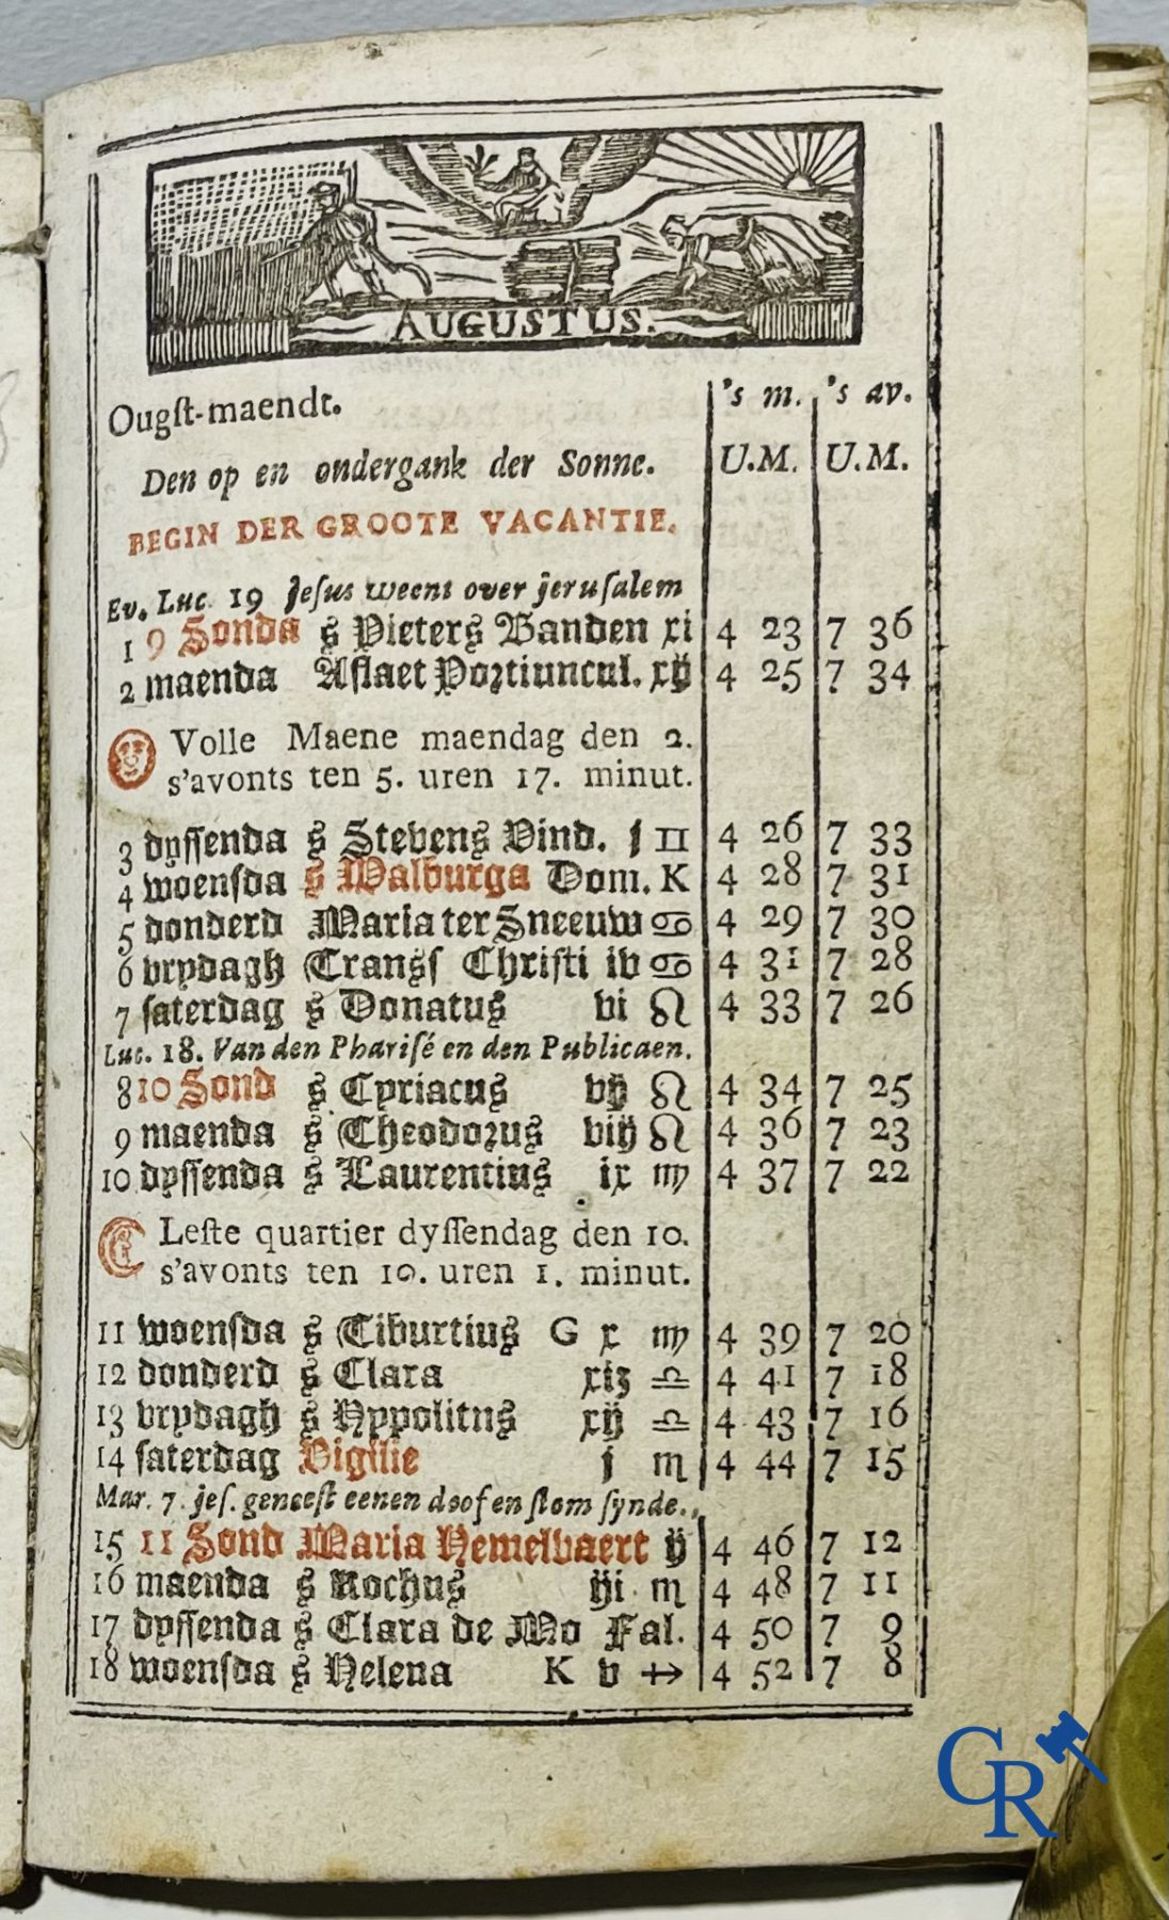 AUGUSTUS.
Ougſt-maendt. 's m. 's av.
Den op en ondergank der Sonne. U.M. U.M.
BEGIN DER GROOTE VACANTIE.
Ev. Luc. 19 Jeſus weent over jeruſalem
1 9 Sonda s Pieters Banden xi 4 23 7 36
2 maenda Aflaet Portiuncul. xij 4 25 7 34
Volle Maene maendag den 2.
s'avonts ten 5. uren 17. minut.
3 dyſſenda s Stevens Vind. j ♊ 4 26 7 33
4 woenſda s Walburga Dom. K 4 28 7 31
5 donderd Maria ter Sneeuw ♋ 4 29 7 30
6 vrydagh Transf Chriſti iv ♋ 4 31 7 28
7 ſaterdag s Donatus vi ♌ 4 33 7 26
Luc. 18. Van den Phariſé en den Publicaen.
8 10 Sond s Cyriacus vij ♌ 4 34 7 25
9 maenda s Theodorus viij ♌ 4 36 7 23
10 dyſſenda s Laurentius ix ♍ 4 37 7 22
Leſte quartier dyſſendag den 10.
s'avonts ten 10. uren 1. minut.
11 woenſda s Tiburtius G x ♍ 4 39 7 20
12 donderd s Clara ♎ 4 41 7 18
13 vrydagh s Hyppolitus xij ♎ 4 43 7 16
14 ſaterdag Vigilie j ♏ 4 44 7 15
Mar. 7. jeſ. geneeſt eenen doof en ſtom ſynde.
15 11 Sond Maria Hemelvaert ij 4 46 7 12
16 maenda s Rochus iji ♏ 4 48 7 11
17 dyſſenda s Clara de Mo Fal. 4 50 7 9
18 woenſda s Helena K v ♐ 4 52 7 8
CR